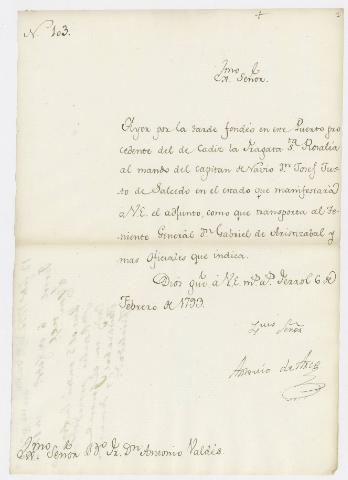 N.º 103.
Exmo. Sr.
Señor.
Ayer por la tarde fondeó en este Puerto pro
cedente del de Cadiz la Fragata Sta. Rosalia
al mando del Capitan de Navio Dn. Josef Jus
to de Salcedo en el estado que manifestará
à V.E. el adjunto, como que transporta al Te
niente General Dn. Gabriel de Aristizabal y
mas oficiales que indica.
Dios gue. à V.E. ms. as. Ferrol 6 de
Febrero de 1793.
Señor
Antonio de Arce
Exmo. Sr. Bo. Fr. Dn. Antonio Valdés.